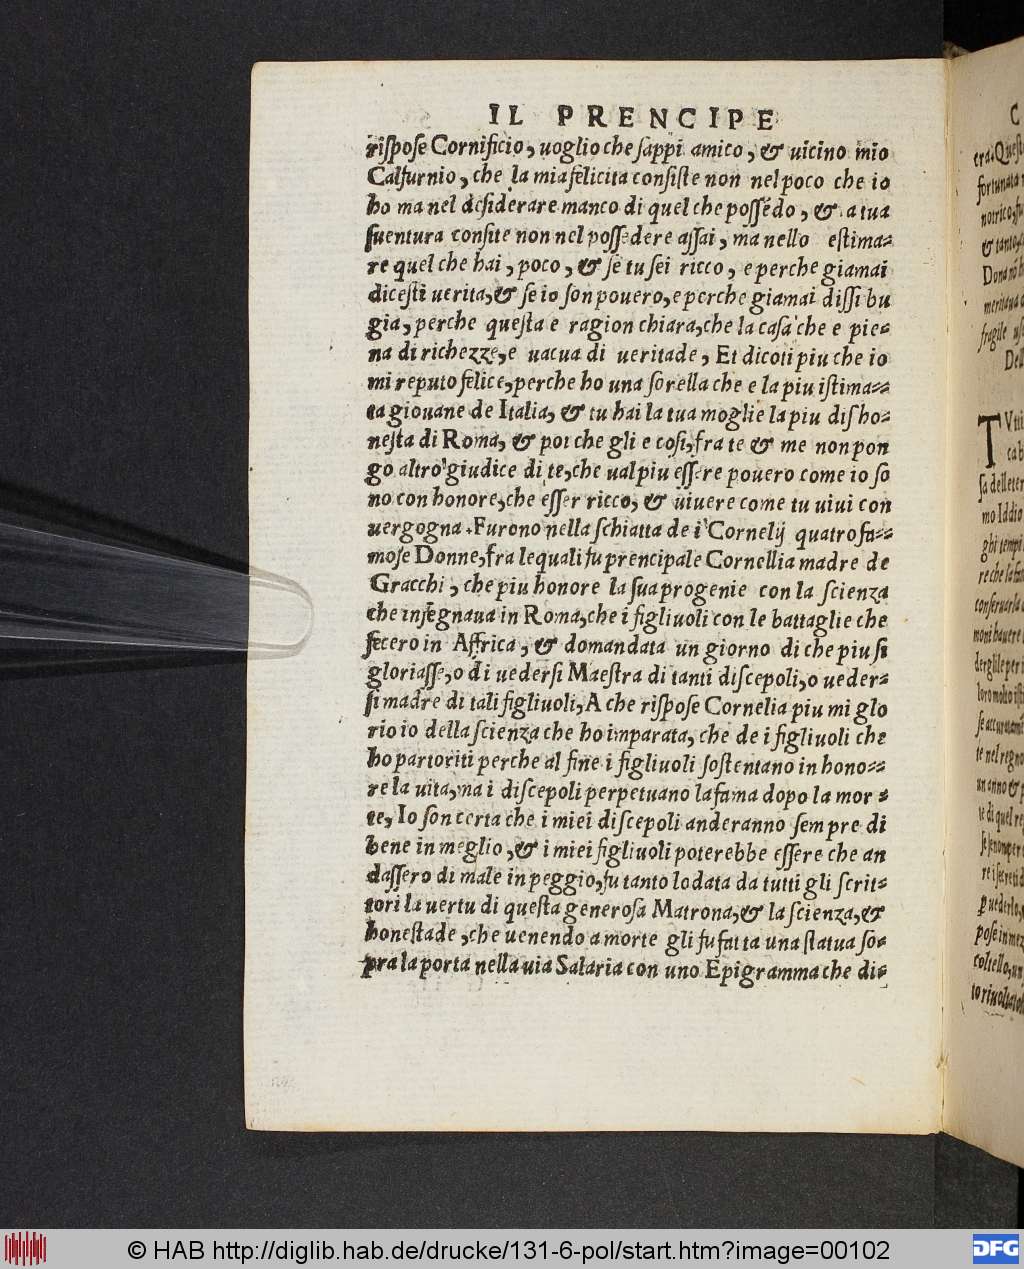 IL PRENCIPE
rispose Cornificio, uoglio che sappi amico, & uicino mio
Calfurnio, che la mia felicita consiste non nel poco che io
ho ma nel desiderare manco di quel che possédo, & la tua
suentura consite non nel possedere assai, ma nello estima=
re quel che hai, poco, & se tu sei ricco, e perche giamai
dicesti uerita, & se io son pouero, e perche giamai dissi bu
gia, perche questa e ragion chiara, che la casa che e pie=
na di richezze, e uacua di ueritade, Et dicoti piu che io
mi reputo felice, perche ho una sorella che e la piu istima=
ta giouane de Italia, & tu hai la tua moglie la piu disho=
nesta di Roma, & poi che gli e cosi, fra te & me non pon
go altro giudice di te, che ual piu essere pouero come io so
no con honore, che esser ricco, & uiuere come tu uiui con
uergogna. Furono nella schiatta de i Cornelij quatro fa=
mose Donne, fra lequali fu prencipale Cornellia madre de
Gracchi, che piu honore la sua progenie con la scienza
che insegnaua in Roma, che i figliuoli con le battaglie che
fecero in Affrica, & domandata un giorno di che piu si
gloriasse, o di uedersi Maestra di tanti discepoli, o ueder=
si madre di tali figliuoli, A che rispose Cornelia piu mi glo
rio io della scienza che ho imparata, che de i figliuoli che
ho partoriti perche al fine i figliuoli sostentano in hono=
re la uita, ma i discepoli perpetuano la fama dopo la mor=
te, Io son certa che i miei discepoli anderanno sempre di
bene in meglio, & i miei figliuoli poterebbe essere che an
dassero di male in peggio, fu tanto lodata da tutti gli scrit=
tori la uertu di questa generosa Matrona, & la scienza, &
honestade, che uenendo a morte gli fu fatta una statua so=
pra la porta nella uia Salaria con uno Epigramma che di=
C
era. Quest
fortunata
notrico, fu
& tanto
Dona nō h
meritaua
fragile us
Del
TVtti
cab
sa delleter
mo Iddio
ghi tempi
re che la fa
conseruarla
moni hauere
derglile per
loro molto
se accuratam
te nel regno
un anno & p
te di quel re
se senomper
re i secreti d
uederlo,
pose in mez
coltello, un
to riuoltatol
© HAB http://diglib.hab.de/drucke/131-6-pol/start.htm?image=00102
DFG